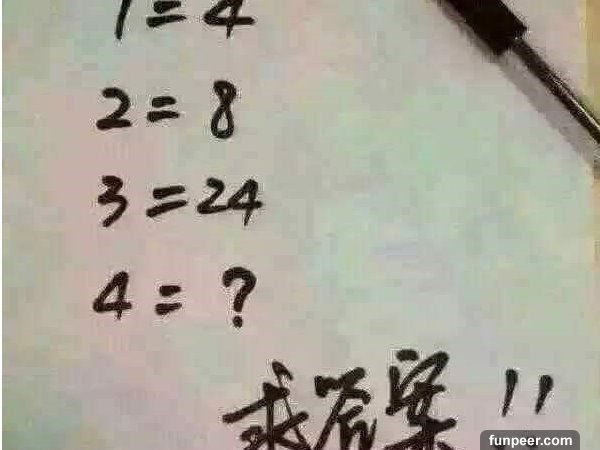 1=4
2=8
3=24
4=?
求答案!!
funpeer.com